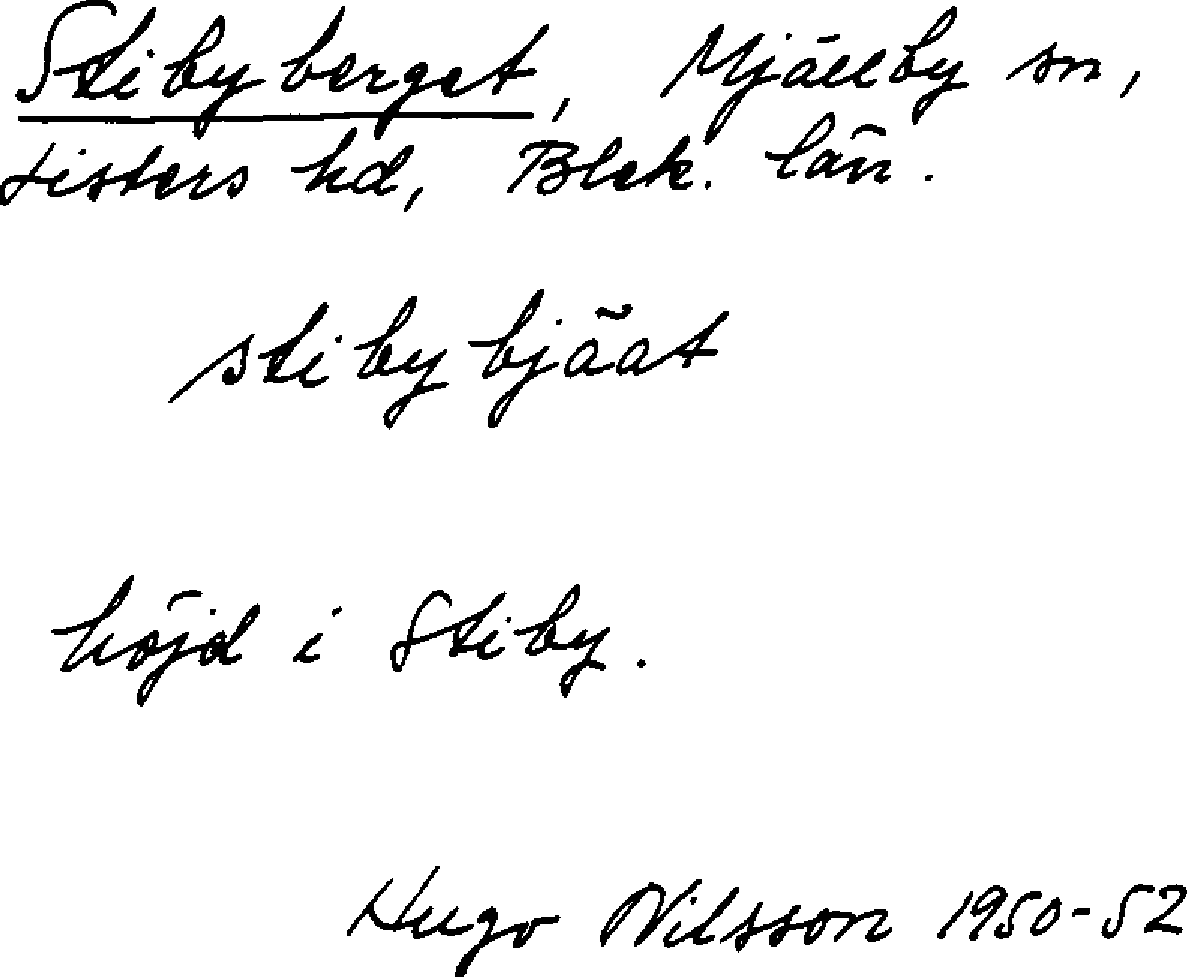 Stibyberget, Mjällby sn,
Listers hd, Blek. län.
stibybjäat
höjd i Stiby.
Hugo Nilsson 1950-52